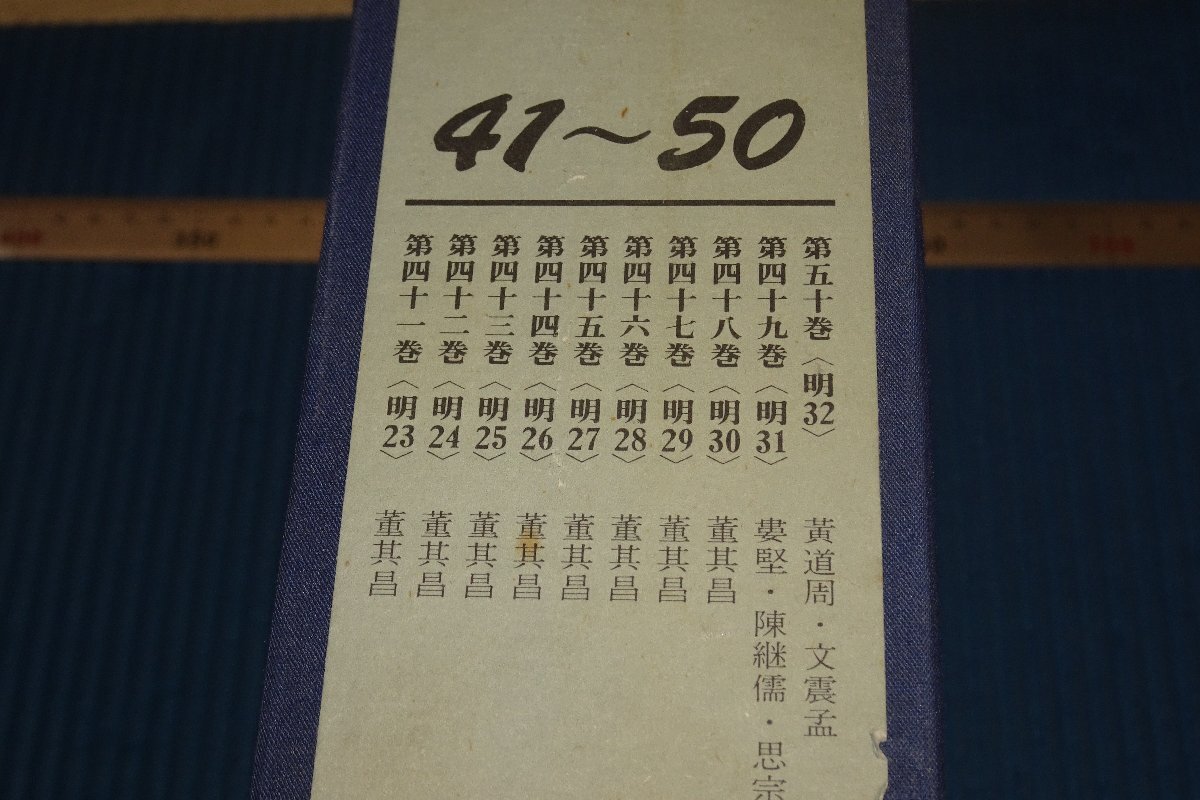 41～50
第四十一巻〈明23〉 董其昌
第四十二巻〈明24〉 董其昌
第四十三巻〈明25〉 董其昌
第四十四巻〈明26〉 董其昌
第四十五巻〈明27〉 董其昌
第四十六巻〈明28〉 董其昌
第四十七巻〈明29〉 董其昌
第四十八巻〈明30〉 董其昌
第四十九巻〈明31〉 婁堅・陳継儒・思宗
第五十巻〈明32〉 黃道周・文震孟